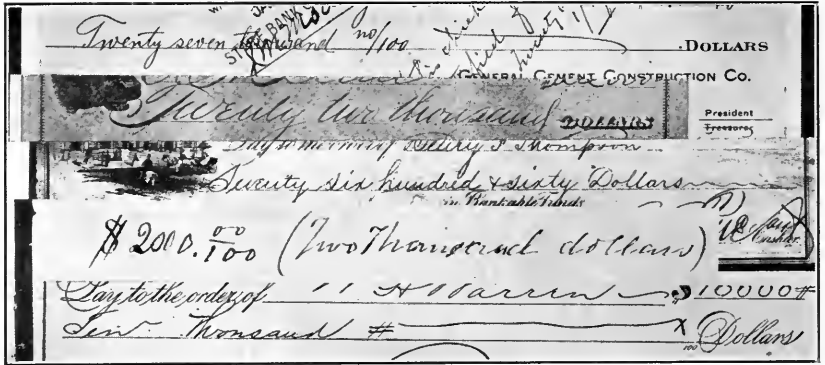 STATE BANK
Twenty seven thousand no/100 DOLLARS
GENERAL CEMENT CONSTRUCTION CO.
Twenty two thousand DOLLARS
President
Treasurer
Thompson
Seventy six hundred & sixty Dollars
in Bankable funds
$2000.00/100 (Two Thousand dollars)
Cashier
Pay to the order of H Warren $10000#
Ten Thousand # x Dollars
100